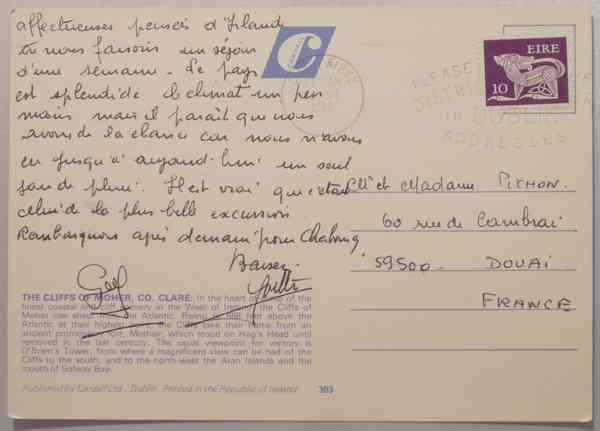 affectueuses pensées d'Irlande
Où nous faisons un séjour
d'une semaine. Le pays
est splendide le climat un peu
moins mais il paraît que nous
avons de la chance car nous n'avons
eu jusqu'à aujourd'hui un seul
jour de pluie. Il est vrai que c'était
celui de la plus belle excursion.
Rembarquons après demain pour Cherbourg
Baisers
Yvette
CARDALL
PLEASE
DISTRICT
IN DUBLIN
ADDRESSES
EIRE
10
Mr et Madame PITHON.
60 rue de Cambrai
59500. DOUAI
FRANCE
THE CLIFFS OF MOHER, CO. CLARE: In the heart of some of the
finest coastal and cliff scenery in the West of Ireland the Cliffs of
Moher rise sheer the Atlantic. Rising to 668 feet above the
Atlantic at their highest point the Cliffs take their name from an
ancient promontory fort, Mothair, which stood on Hag's Head until
removed in the last century. The usual viewpoint for visitors is
O'Brien's Tower, from where a magnificent view can be had of the
Cliffs to the south, and to the north-west the Aran Islands and the
mouth of Galway Bay.
Published by Cardall Ltd., Dublin. Printed in the Republic of Ireland 303